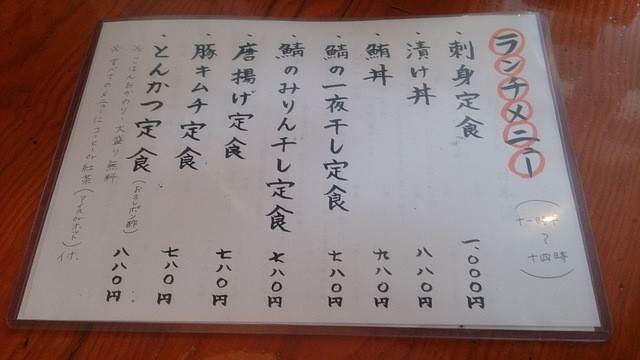 ランチメニュー
(十一時半～十四時)
・刺身定食 一、〇〇〇円
・漬け丼 八八〇円
・鮪丼 九八〇円
・鯖の一夜干し定食 七八〇円
・鯖のみりん干し定食 七八〇円
・唐揚げ定食 七八〇円
・豚キムチ定食 七八〇円
・とんかつ定食(おろしポン酢) 八八〇円
※ごはんおかわり・大盛り無料
※すべてのメニューにコーヒーor紅茶(アイスorホット)付